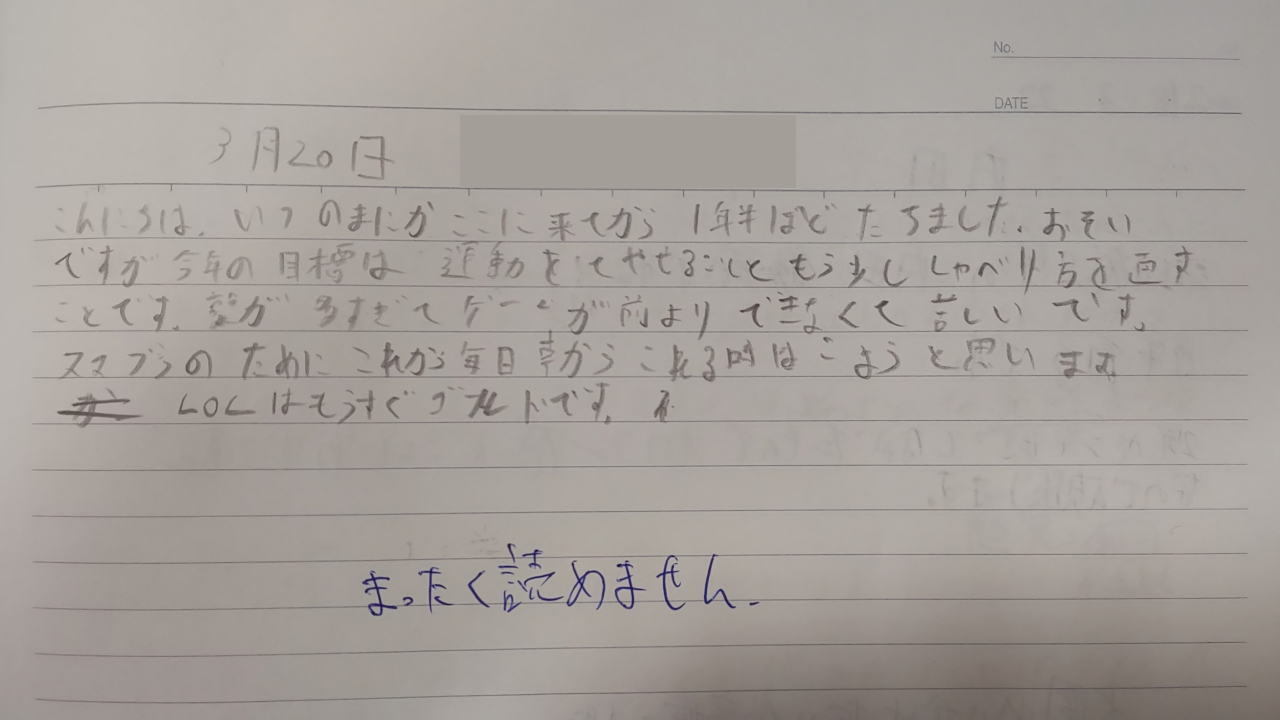 No.
DATE
3月20日
こんにちは、いつのまにかここに来てから1年半ほどたちました、おそい
ですが今年の目標は運動をしてやせることともう少ししゃべり方を直す
ことです。 が多すぎてゲームが前よりできなくて苦しいです。
スマブラのためにこれから毎日 からこれる時はこようと思います
LOLはもうすぐゴールドです。
まったく読めません.